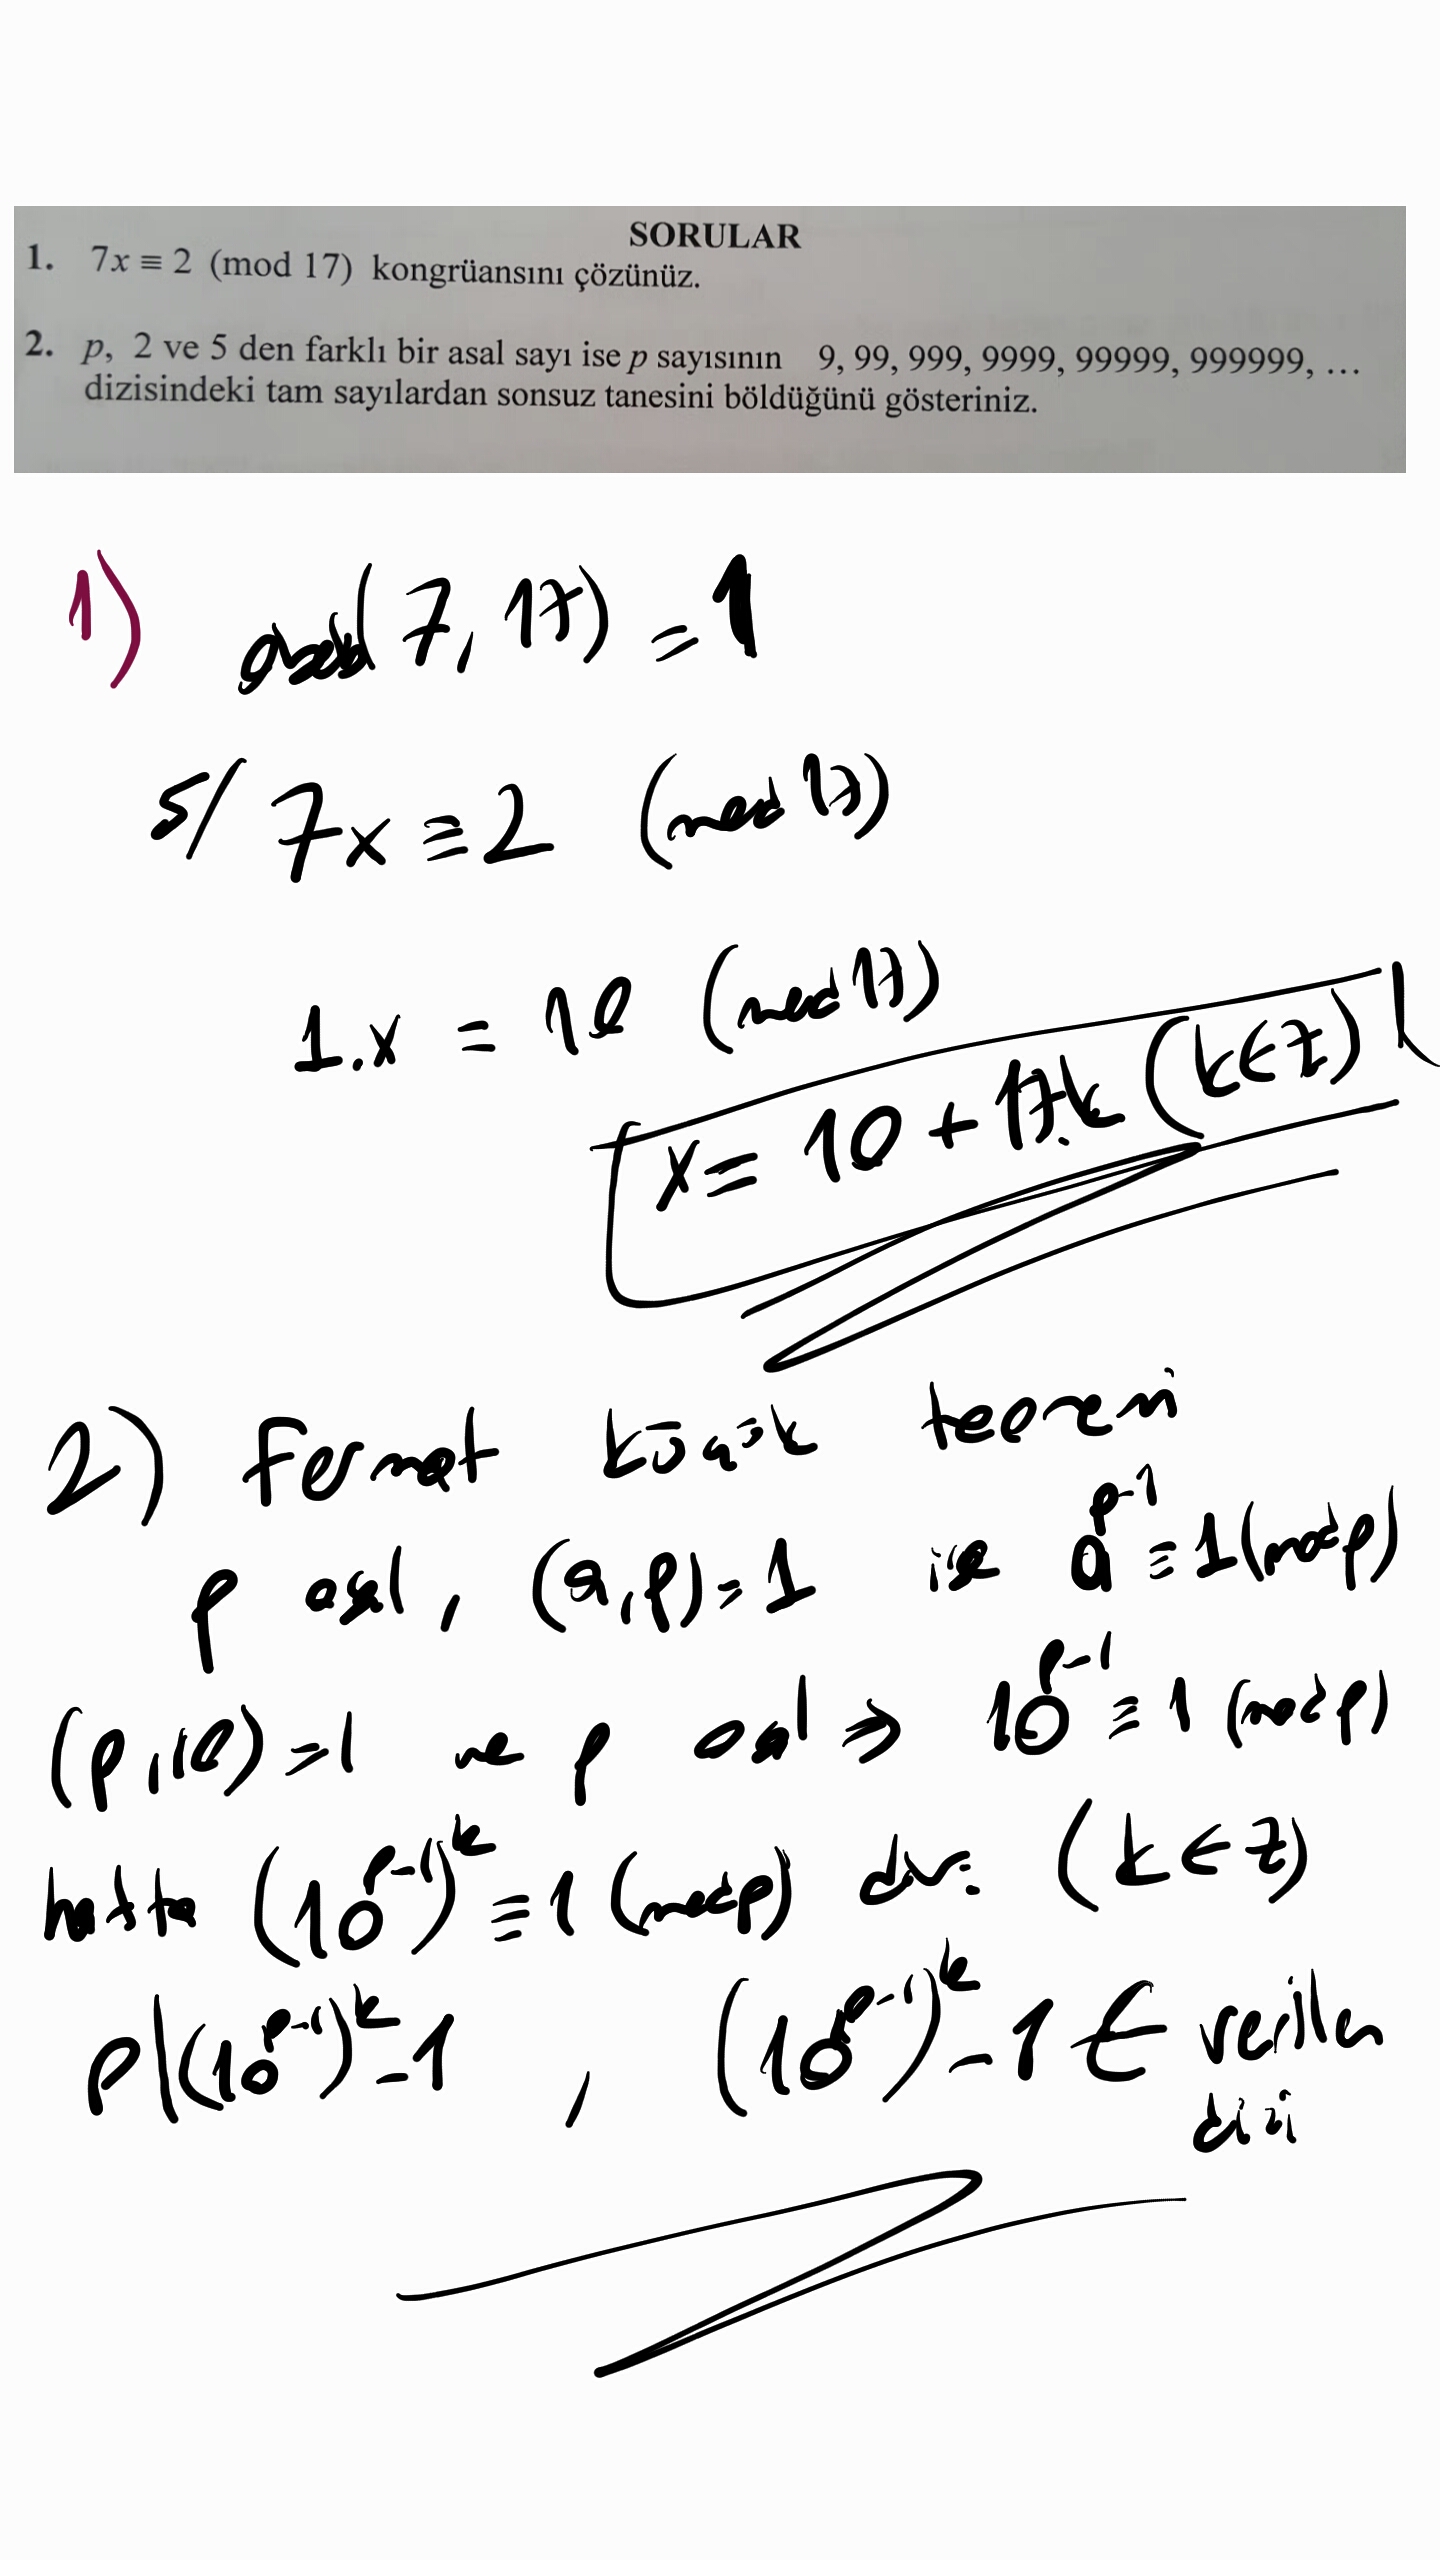 SORULAR
1. 7x ≡ 2 (mod 17) kongrüansını çözünüz.
2. p, 2 ve 5 den farklı bir asal sayı ise p sayısının 9, 99, 999, 9999, 99999, 999999, ...
dizisindeki tam sayılardan sonsuz tanesini böldüğünü gösteriniz.
1) obeb(7, 17) = 1
5/ 7x ≡ 2 (mod 17)
1.x = 10 (mod 17)
x = 10 + 17.k (k∈Z)
2) Fermat küçük teoremi
p asal, (a,p)=1 ise a^{p-1} ≡ 1 (mod p)
(p,10)=1 ve p asal ⇒ 10^{p-1} ≡ 1 (mod p)
hatta (10^{p-1})^k ≡ 1 (mod p) dir. (k∈Z)
p|(10^{p-1})^k -1 , (10^{p-1})^k -1 ∈ verilen
dizi